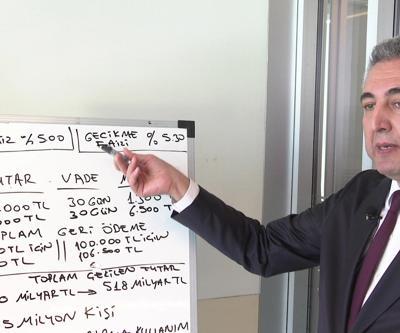 İZ %500 GECİKME FAİZİ % 530
TUTAR VADE
000 TL 30 GÜN 1.500
TL 30 GÜN 6.500 TL
TOPLAM GERİ ÖDEME
TL İÇİN 100.000 TL İÇİN
TL 106.500 TL
TOPLAM ÇEKİLEN TUTAR
0 MİLYAR TL → 518 MİLYAR TL
5 MİLYON KİŞİ
KULLANIM